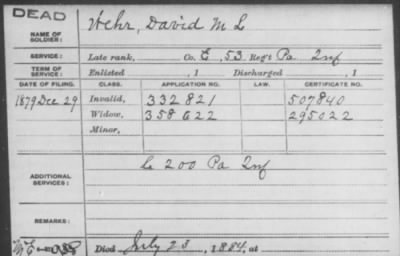 DEAD
NAME OF SOLDIER: Wehr, David M L
SERVICE: Late rank, Co. E, 53 Reg't Pa Inf
TERM OF SERVICE: Enlisted , 1 Discharged , 1
DATE OF FILING. CLASS. APPLICATION NO. LAW. CERTIFICATE NO.
1879 Dec 29 Invalid, 332821 507840
Widow, 358622 295022
Minor,
ADDITIONAL SERVICES: 200 Pa Inf
REMARKS:
Died July 23, 1884, at